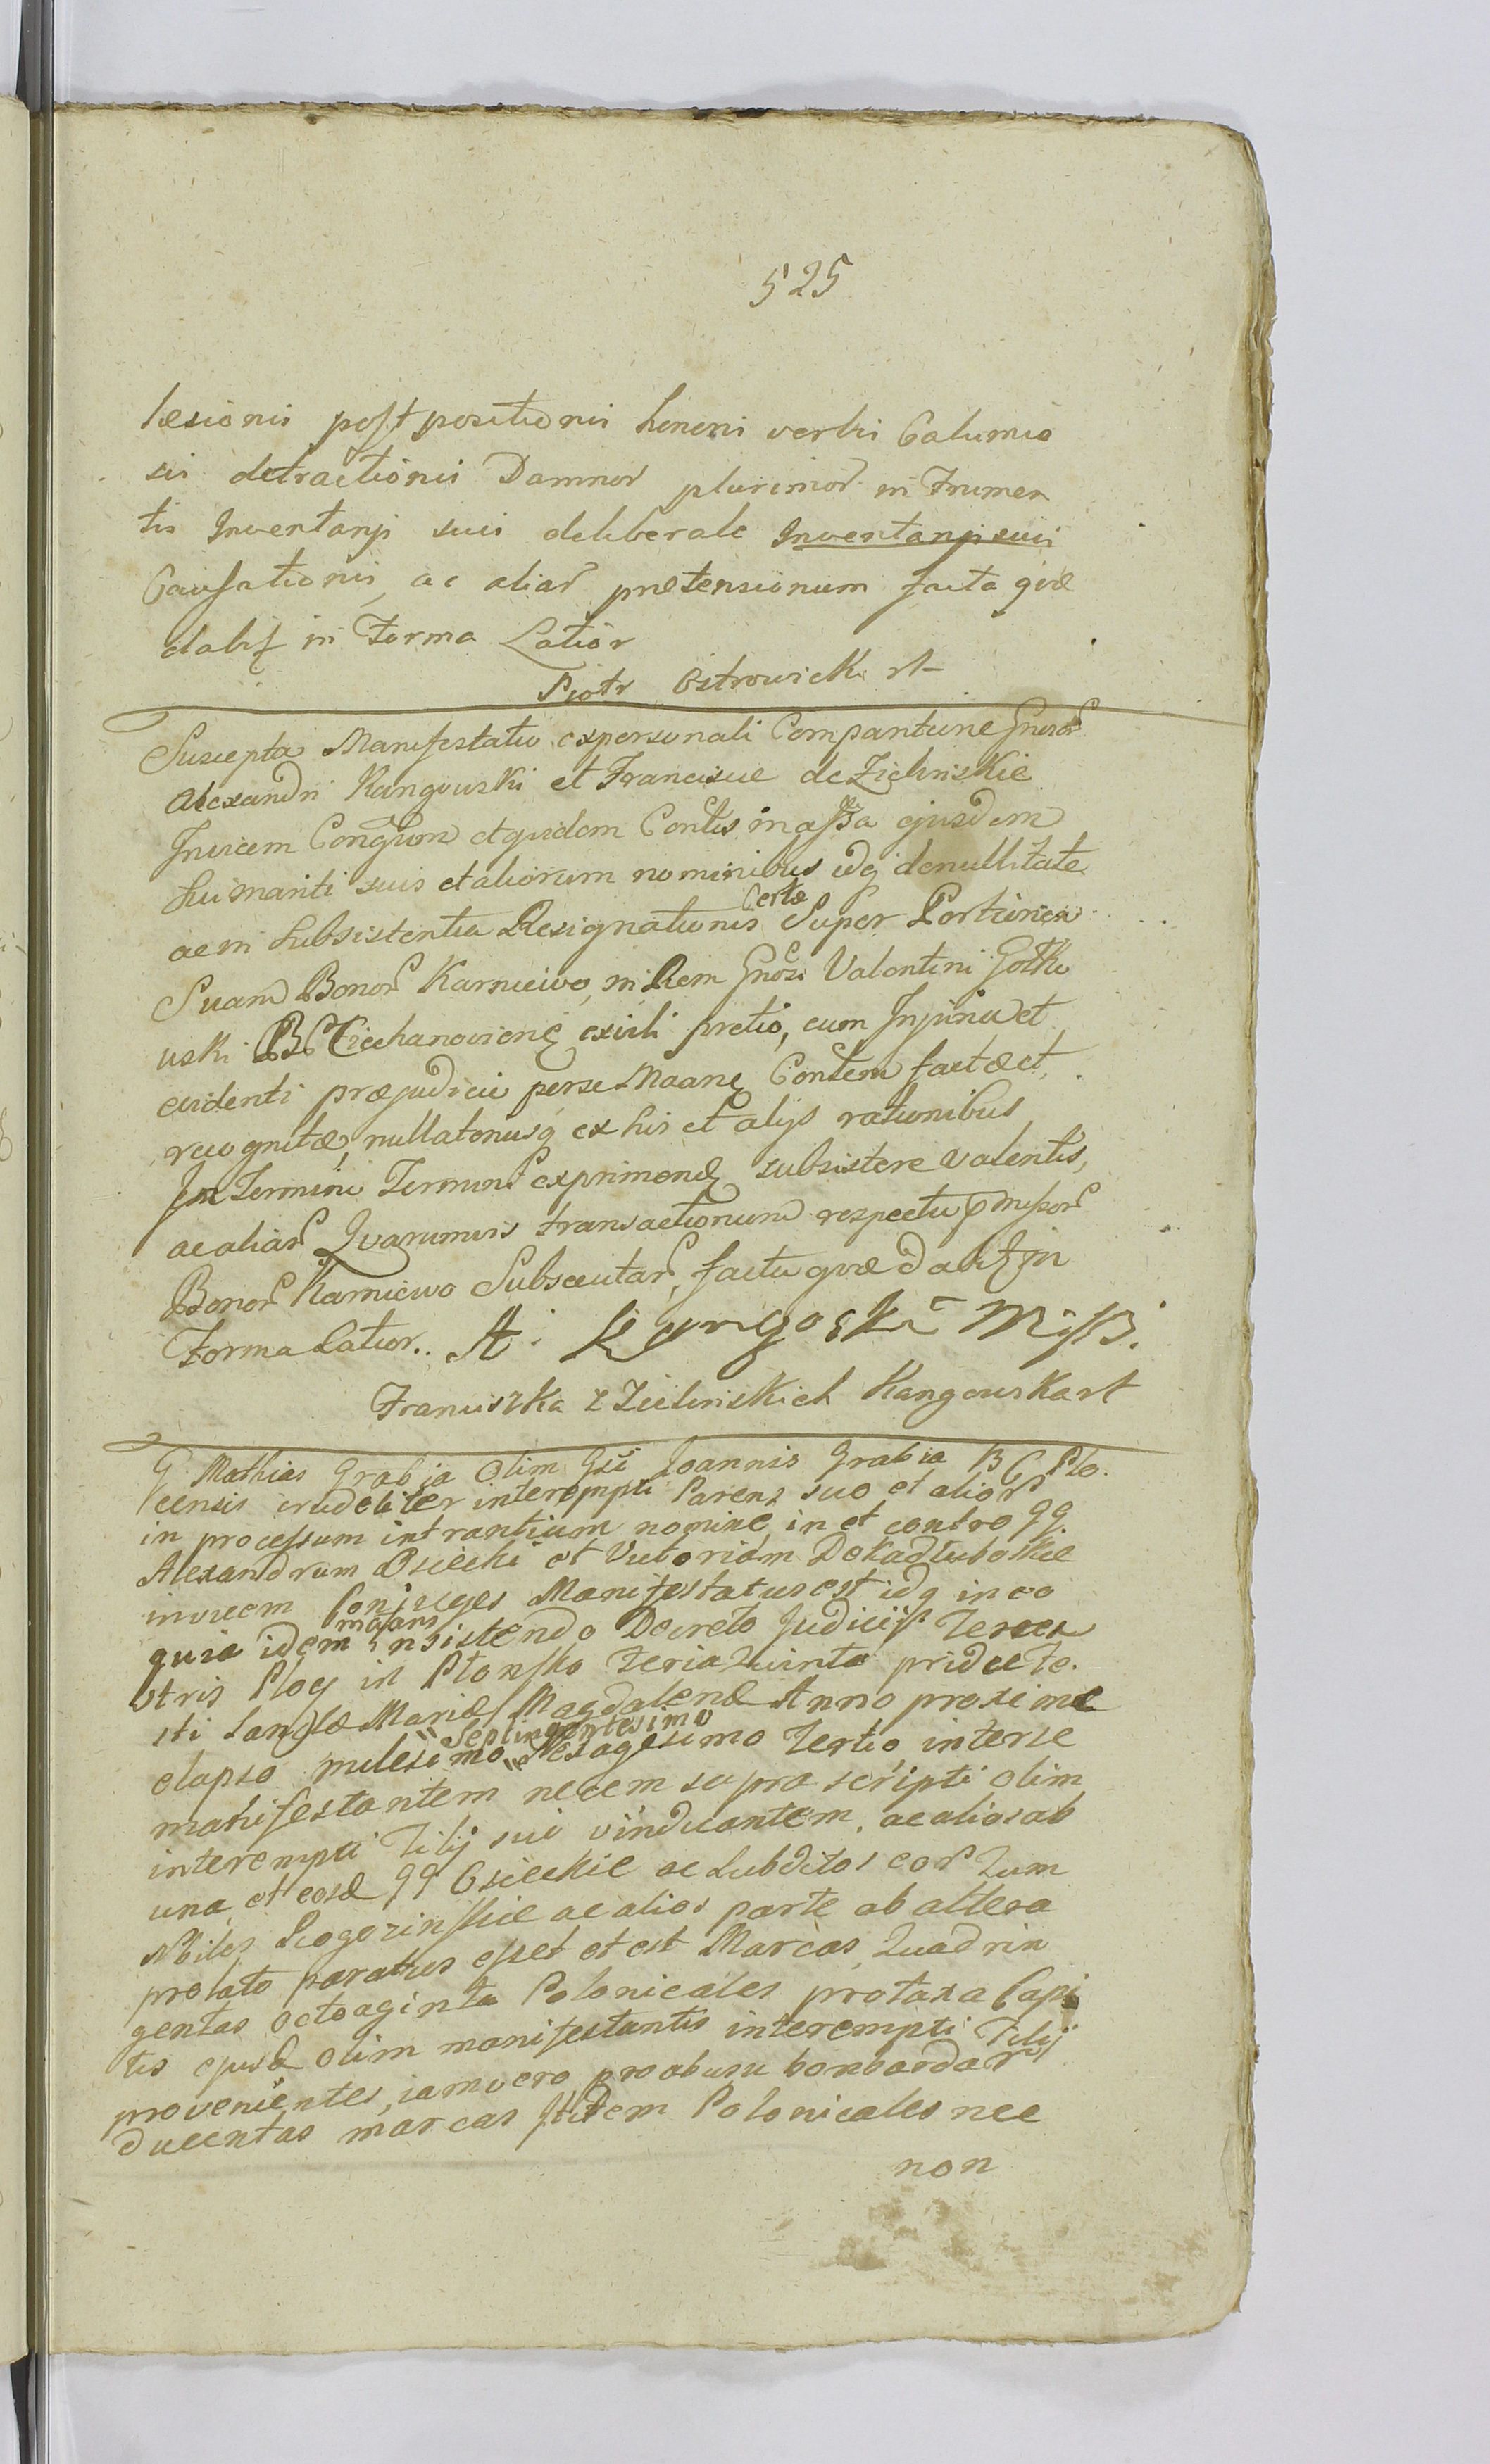 525
læsionis postpositionis honoris verbis Calumnio
sis detractionis Damnor plurimor in Frumen
tis Inventarij sui deliberate Inventarij sui
Causationis, ac aliar prætensionum facta qvæ
dabit in Forma Latior
Piotr Ostrowicki rt
Suscepta Manifestatio expersonali Comparitione Gneror
Alexandri Kangowski et Franciscæ de Zielinskie
Invicem Conjgum et quidem Contis in assa ejusdem
sui mariti suis et aliorum nominibus idq de nullitate
ac in subsistentia Resignationis Certæ Super Portionem
Suam Bonor Karniewo, in Rem Gnosi Valentini Gotko
wski B Ciechanovien exvili pretio, cum Injuria et
evidenti præjudicio per se Maane Contem factæ et
recognitæ, nullatenusq ex his et alijs rationibus
In Termini Termino exprimend subsistere valentis,
ac aliar Qvarumvis transactionum respectu pmissor
Bonor Karniewo Subsecutar, facta qvæ dabit in
Forma Latior.. A. Kangoski mp.
Franciszka z Zielinskich Kangowska rt
G Mathias Grabia Olim Gsi Joannis Grabia B C Plo.
censis crudeliter interempti Parens suo et alior
in processum intrantium nomine in et contra GG.
Alexandrum Osiecki et Victoriam De Kadłuboskie
invicem Conjuges Manifestatus est idq in eo
quia idem manifestans insistendo Decreto Judicij Terres
stris Ploc in Plonsko Feria Quinta pridie Fe.
sti Sanctæ Mariæ Magdalenæ Anno proxime
elapso milesimo Septingentesimo Sexagesimo Tertio inter se
manifestantem necem supra scripti olim
interempti Filij sui vindicantem, ac alios ab
una, et eosd GG Osieckie ac Subditos eor Tum
Nbiles Rogozinskie ac alios parte ab altera
prolato paratus esset et est Marcas Quadrin
gentas octoaginta Polonicales pro taxa Capi
tis ejusd olim manifestantis interempti Filij
provenientes, iam vero pro abusu bombardar
ducentas marcas itidem Polonicales nec
non